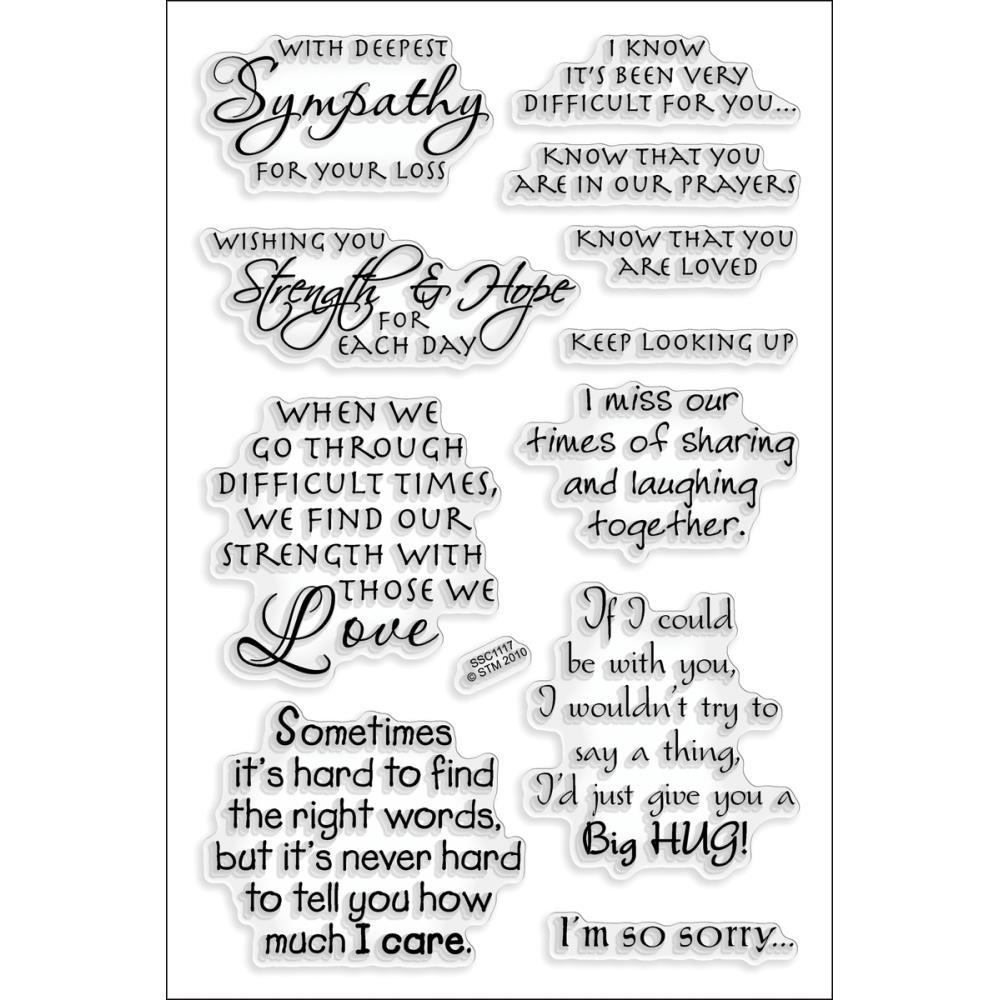 WITH DEEPEST
Sympathy
FOR YOUR LOSS
WISHING YOU
Strength & Hope
FOR
EACH DAY
WHEN WE
GO THROUGH
DIFFICULT TIMES,
WE FIND OUR
STRENGTH WITH
THOSE WE
Love
SSC1117
© STM 2010
Sometimes
it's hard to find
the right words,
but it's never hard
to tell you how
much I care.
I KNOW
IT'S BEEN VERY
DIFFICULT FOR YOU...
KNOW THAT YOU
ARE IN OUR PRAYERS
KNOW THAT YOU
ARE LOVED
KEEP LOOKING UP
I miss our
times of sharing
and laughing
together.
If I could
be with you,
I wouldn't try to
say a thing,
I'd just give you a
Big HUG!
I'm so sorry...